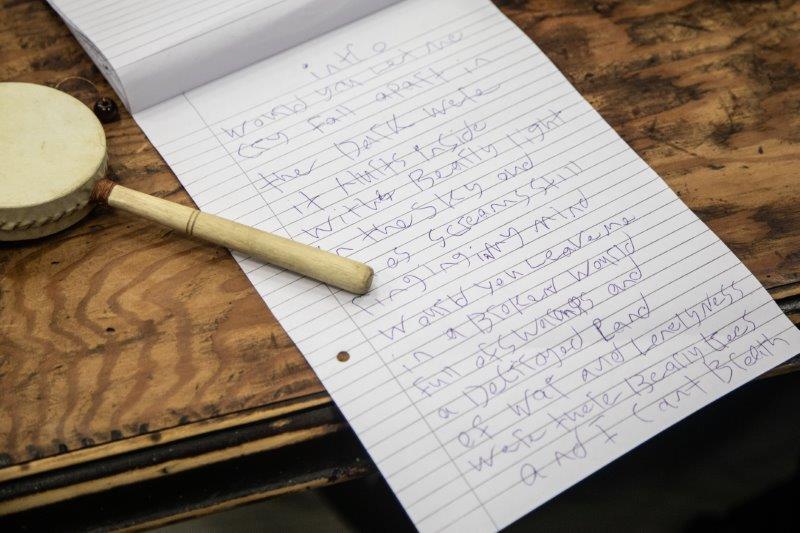 intro
would you Let me
cry fall apart in
ther Dark werle
it Hurts inside
with Beatly light
in the sky and
es screams still
ringing in my mind
would you Leave me
in a Broken would
full of swoings and
a Destroyed Land
of war and Lonelyness
were there Beatly trees
and I cant Breath